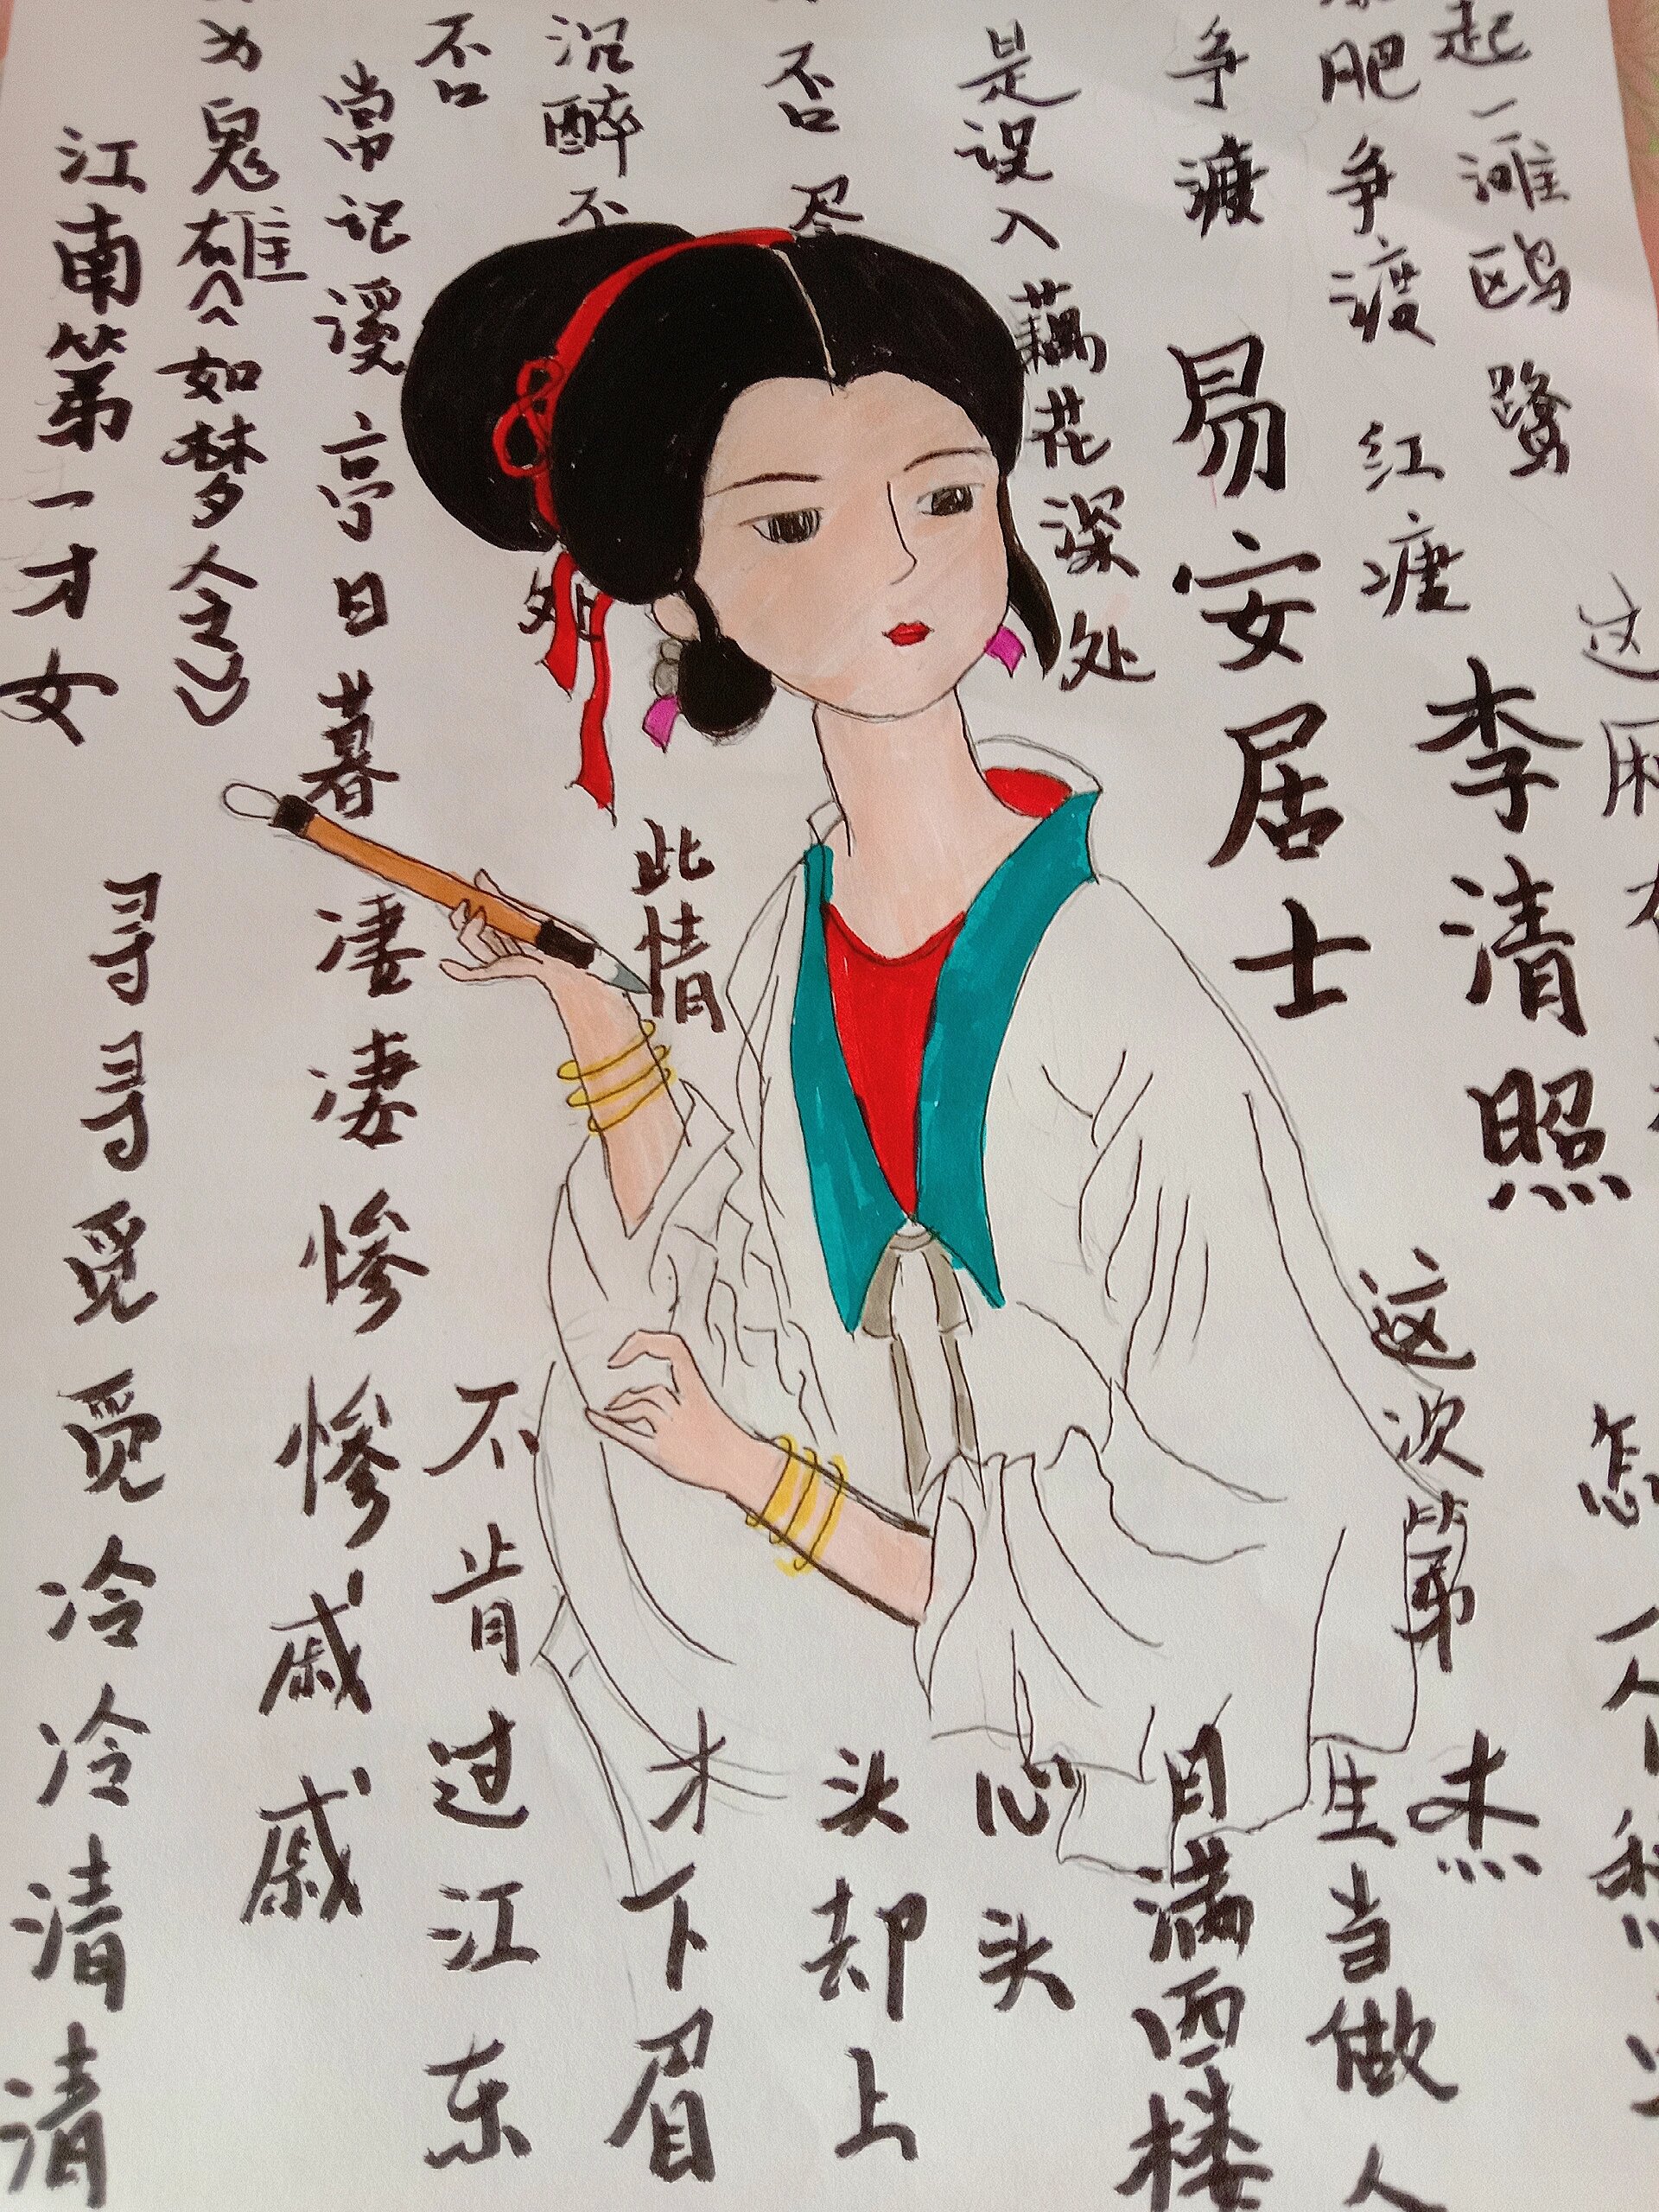 江南第一才女
为鬼雄《如梦令》
常记溪亭日暮
否
沉醉不
处
否
尽
是误入藕花深处
争渡
肥争渡
红瘦
起一滩鸥鹭
易安居士
李清照
寻寻觅觅
冷冷清清
凄凄惨惨
戚戚
不肯过江东
此情
才下眉
头却上
心头
月满西楼
生当做人
杰
这次第
怎一个
这